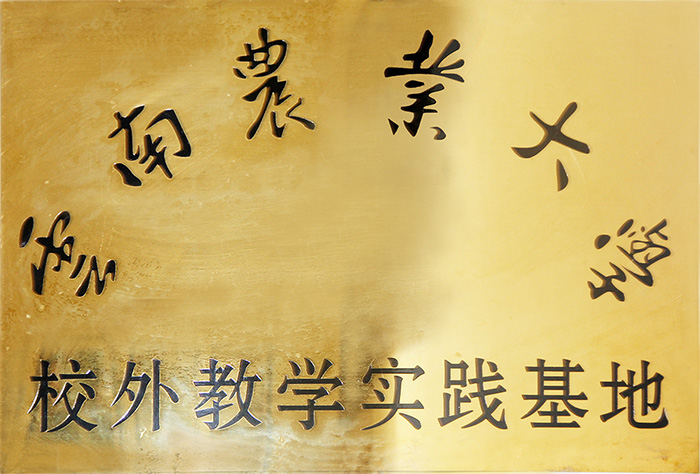 雲南農業大學
校外教学实践基地